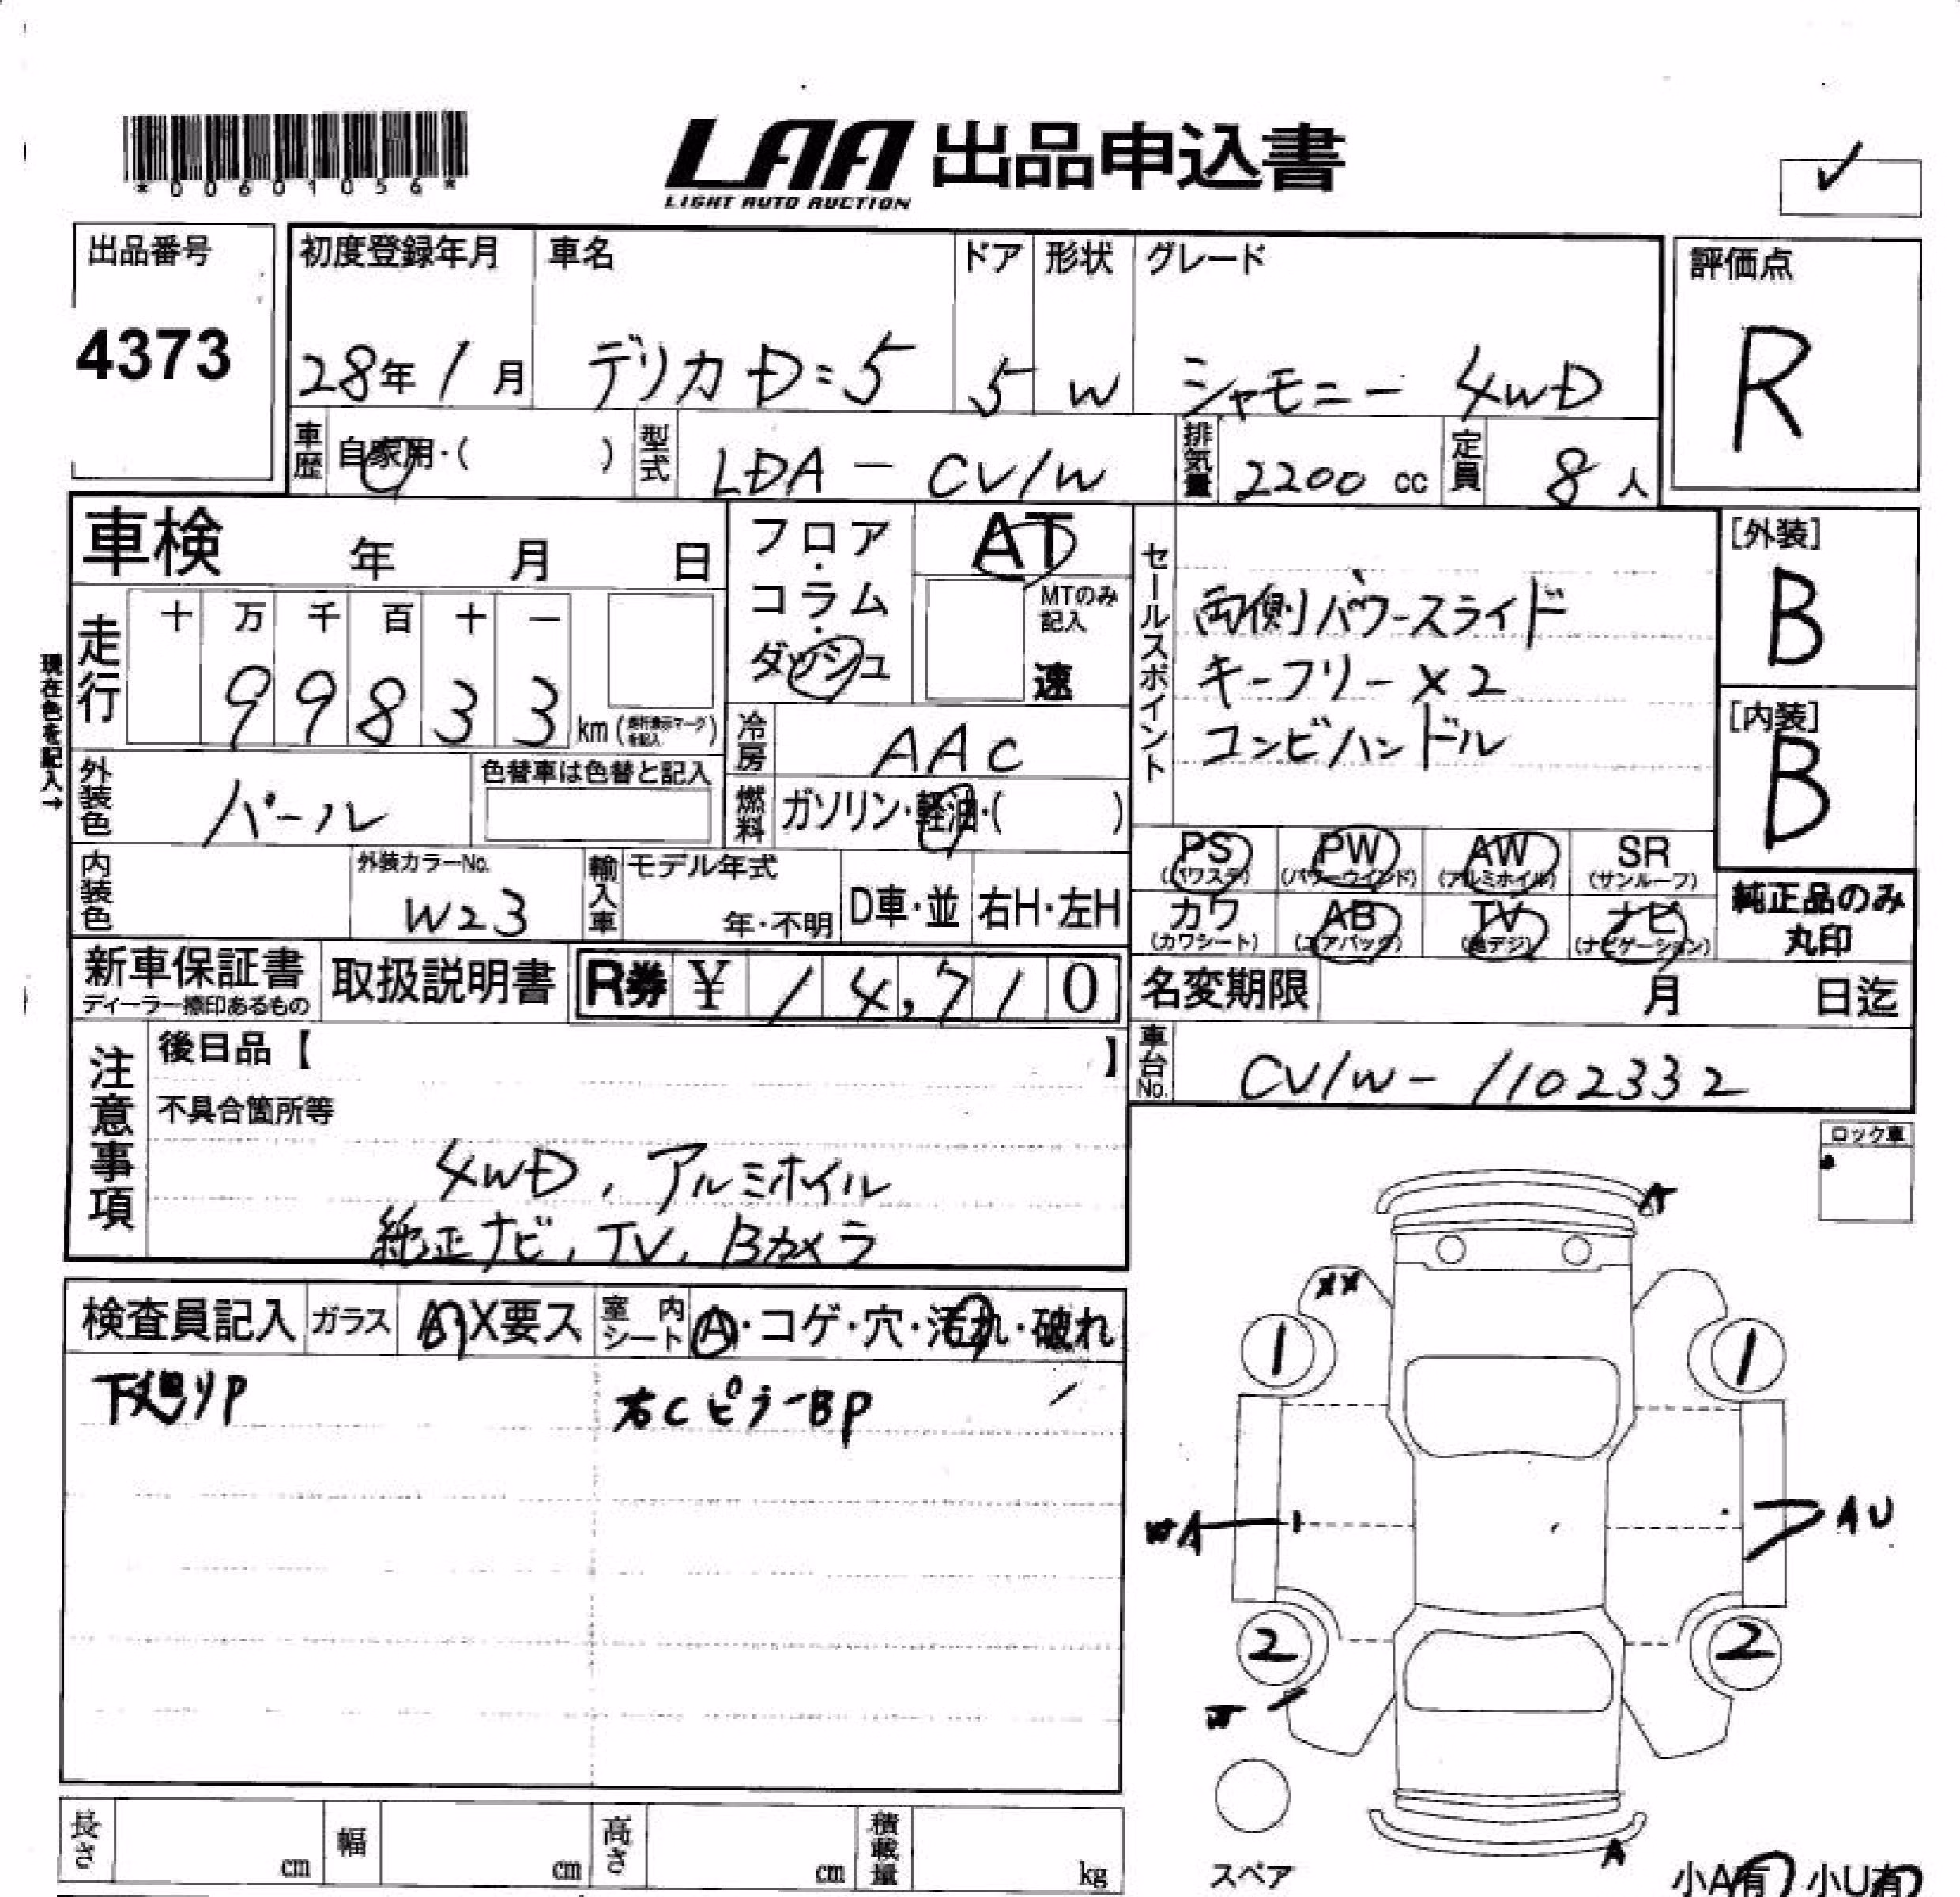 *00601056*
LAA 出品申込書
LIGHT AUTO AUCTION
出品番号
4373
初度登録年月 車名 ドア 形状 グレード
28年 1月 デリカ D:5 5 W シャモニー 4WD
評価点
R
車歴 自家用・( ) 型式 LDA - CV1W 排気量 2200 cc 定員 8 人
車検 年 月 日
フロア・コラム・ダッシュ
AT
MTのみ記入
速
現在色を記入→
走行 十 万 千 百 十 一
99833 km (走行表示マークを記入)
冷房 AAC
外装色 パール
色替車は色替と記入
燃料 ガソリン・軽油・( )
内装色
外装カラーNo.
W23
輸入車 モデル年式
年・不明 D車・並 右H・左H
セールスポイント
両側パワースライド
キーフリー×2
コンビハンドル
[外装]
B
[内装]
B
PS (パワステ) PW (パワーウインド) AW (アルミホイル) SR (サンルーフ)
カワ (カワシート) AB (エアバック) TV (地デジ) ナビ (ナビゲーション)
純正品のみ
丸印
新車保証書
ディーラー捺印あるもの
取扱説明書
R券 ¥ 14,710
名変期限 月 日迄
車台No. CV1W-1102332
注意事項
後日品【 】
不具合箇所等
4WD, アルミホイル
純正ナビ, TV, Bカメラ
ロック車
検査員記入 ガラス A・X要ス 室内シート A・コゲ・穴・汚れ・破れ
下廻りP 右CピラーBP
A
XX
1 1
A AU
2 2
A
スペア
小A有 小U有
長さ cm 幅 cm 高さ cm 積載量 kg